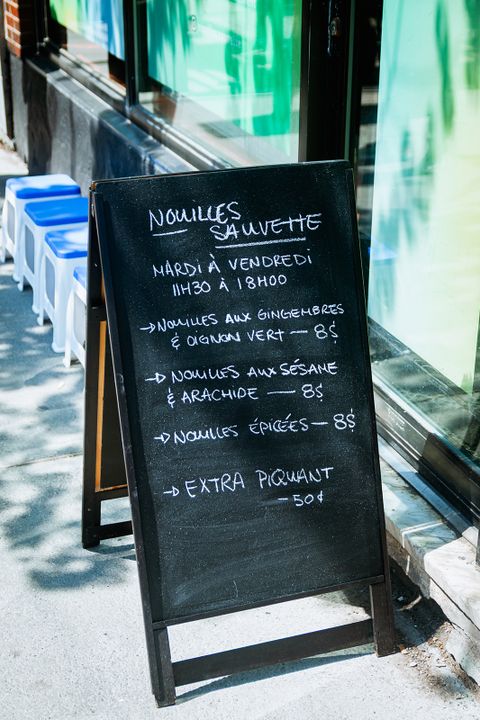 NOUILLES
SAUVETTE
MARDI À VENDREDI
11H30 À 18H00
→ NOUILLES AUX GINGEMBRES
& OIGNON VERT — 8$
→ NOUILLES AUX SÉSANE
& ARACHIDE — 8$
→ NOUILLES ÉPICÉES — 8$
→ EXTRA PIQUANT
— 50¢